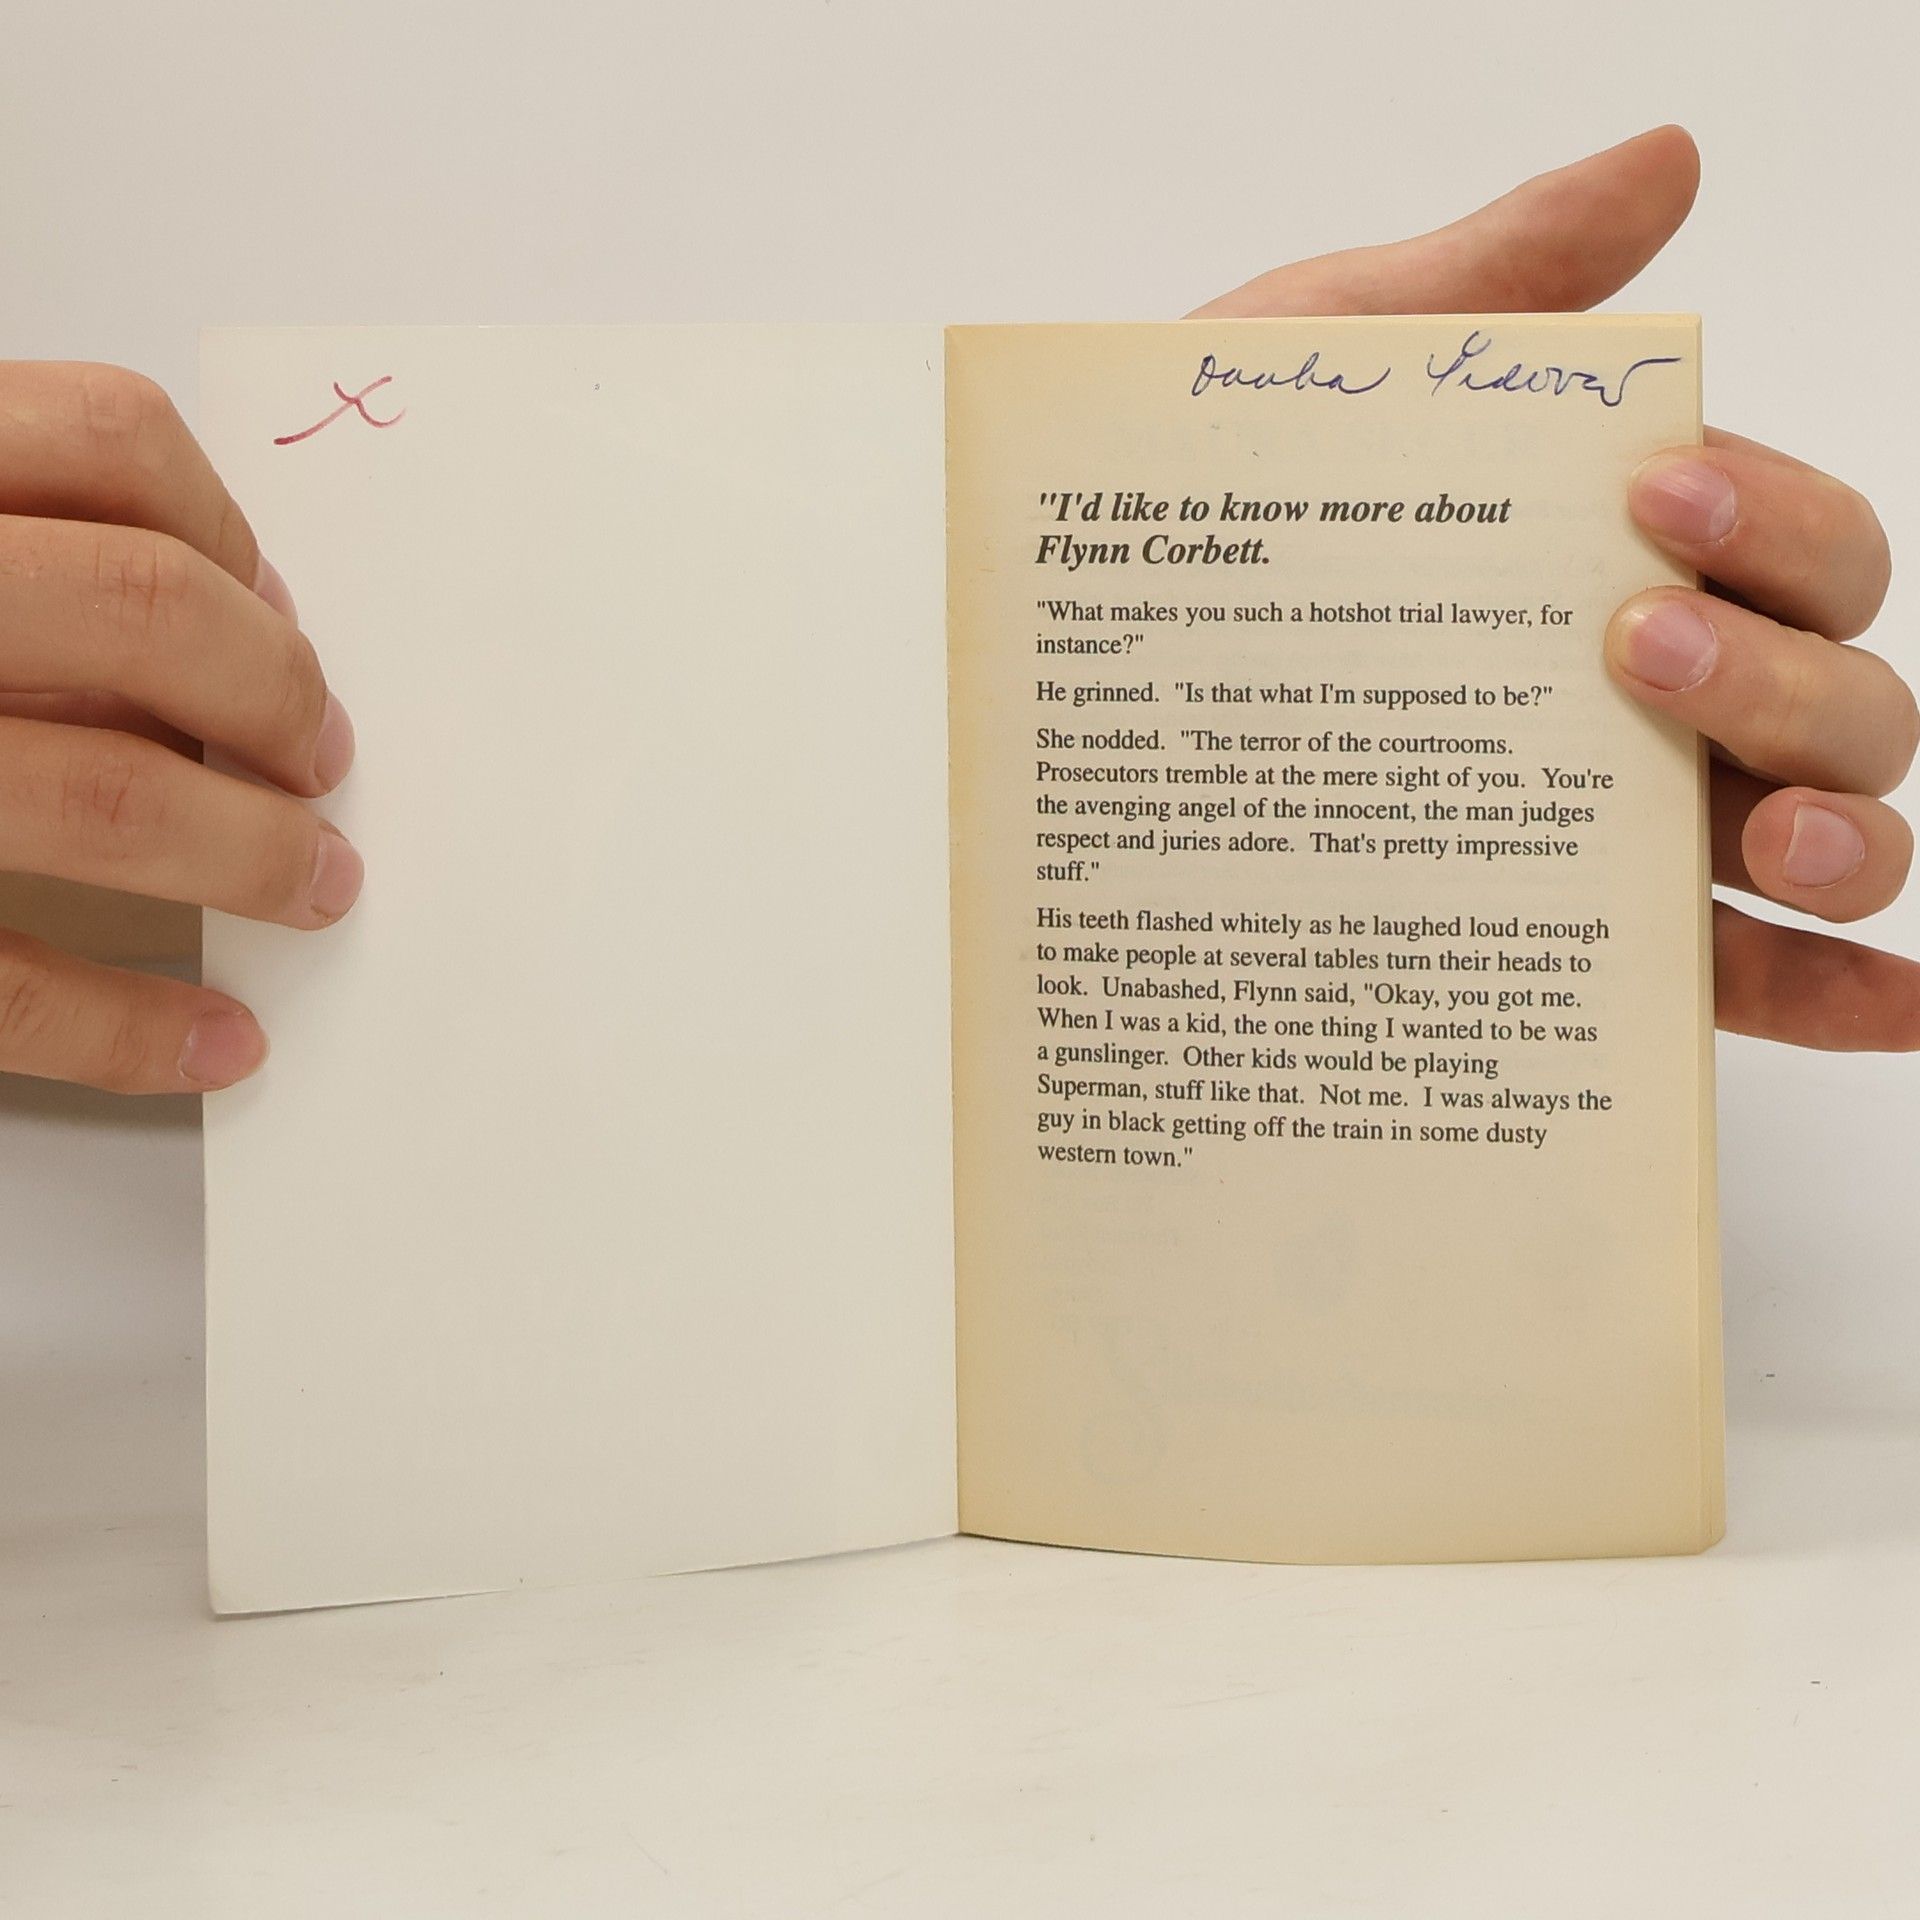 x
"I'd like to know more about
Flynn Corbett.
"What makes you such a hotshot trial lawyer, for
instance?"
He grinned. "Is that what I'm supposed to be?"
She nodded. "The terror of the courtrooms.
Prosecutors tremble at the mere sight of you. You're
the avenging angel of the innocent, the man judges
respect and juries adore. That's pretty impressive
stuff."
His teeth flashed whitely as he laughed loud enough
to make people at several tables turn their heads to
look. Unabashed, Flynn said, "Okay, you got me.
When I was a kid, the one thing I wanted to be was
a gunslinger. Other kids would be playing
Superman, stuff like that. Not me. I was always the
guy in black getting off the train in some dusty
western town."